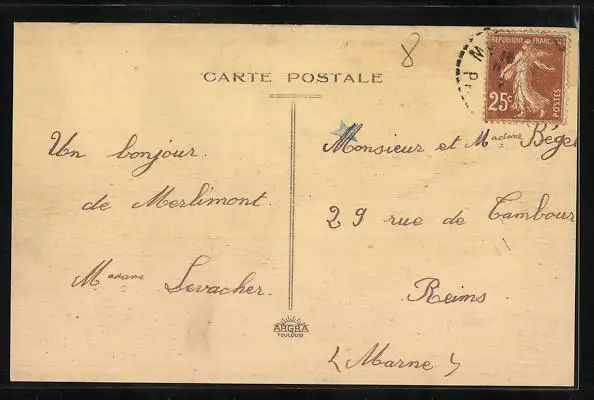 8
CARTE POSTALE
REPUBLIQUE FRANÇAISE
25c
POSTES
Un bonjour.
de Merlimont.
Madame Levacher.
Monsieur et Madame
29 rue de Tambour
Reims
(Marne)
ARGRA
TOULOUSE